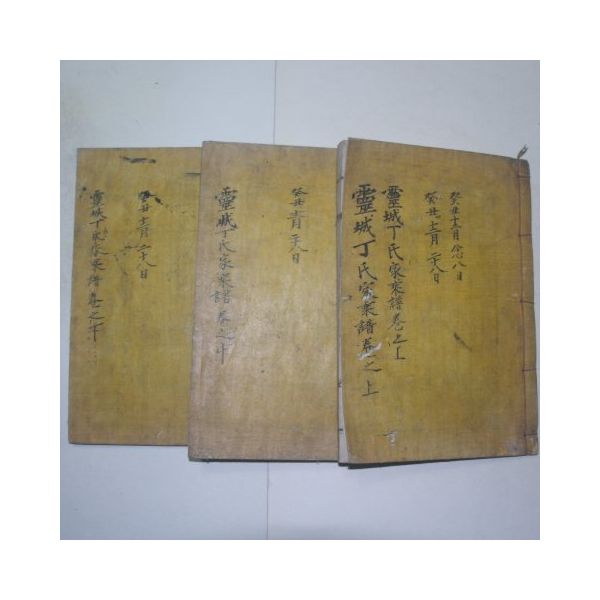 癸丑十二月念八日
癸丑十二月二十八日
靈城丁氏家乘譜卷上
靈城丁氏家乘譜卷之上
癸丑十二月二十八日
靈城丁氏家乘譜卷之中
癸丑十二月二十八日
靈城丁氏家乘譜卷之下